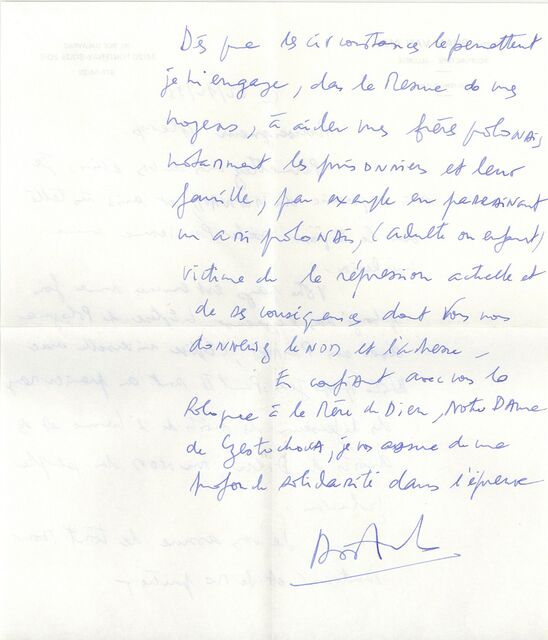 Dès que les circonstances le permettent
je m'engage, dans la mesure de mes
moyens, à aider mes frères polonais,
notamment les prisonniers et leur
famille, par exemple en parrainant
un ami polonais, (adulte ou enfant)
victime de la répression actuelle et
de ses conséquences dont vous nous
donnerez le nom et l'adresse –
En confiant avec vous la
Pologne à la Mère de Dieu, Notre Dame
de Czestochowa, je vous assure de ma
profonde solidarité dans l'épreuve